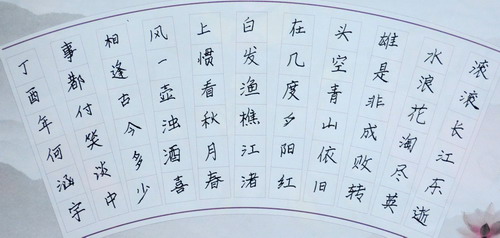 滚滚长江东逝
水浪花淘尽英
雄是非成败转
头空青山依旧
在几度夕阳红
白发渔樵江渚
上惯看秋月春
风一壶浊酒喜
相逢古今多少
事都付笑谈中
丁酉年何涵宇